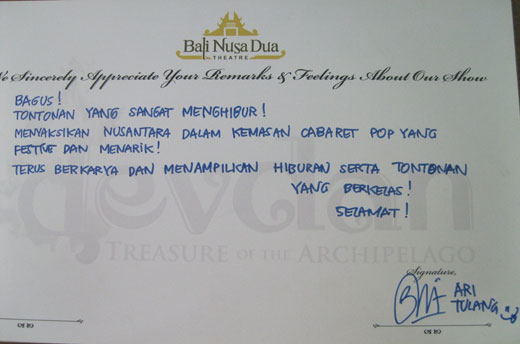 Bali Nusa Dua
THEATRE
We Sincerely Appreciate Your Remarks & Feelings About Our Show
BAGUS!
TONTONAN YANG SANGAT MENGHIBUR!
MENYAKSIKAN NUSANTARA DALAM KEMASAN CABARET POP YANG
FESTIVE DAN MENARIK!
TERUS BERKARYA DAN MENAMPILKAN HIBURAN SERTA TONTONAN
YANG BERKELAS!
SELAMAT!
devdan
TREASURE OF THE ARCHIPELAGO
Signature,
ARI
TULANG